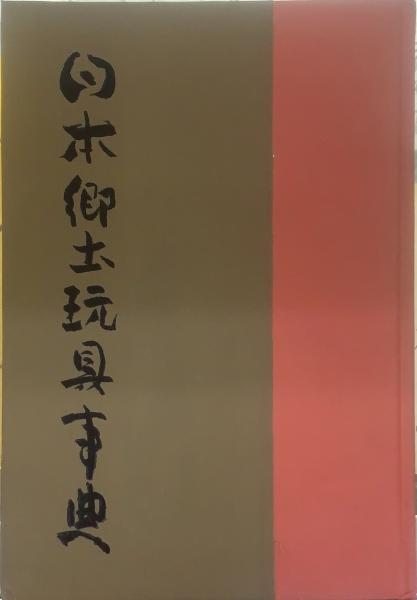 日本郷土玩具事典